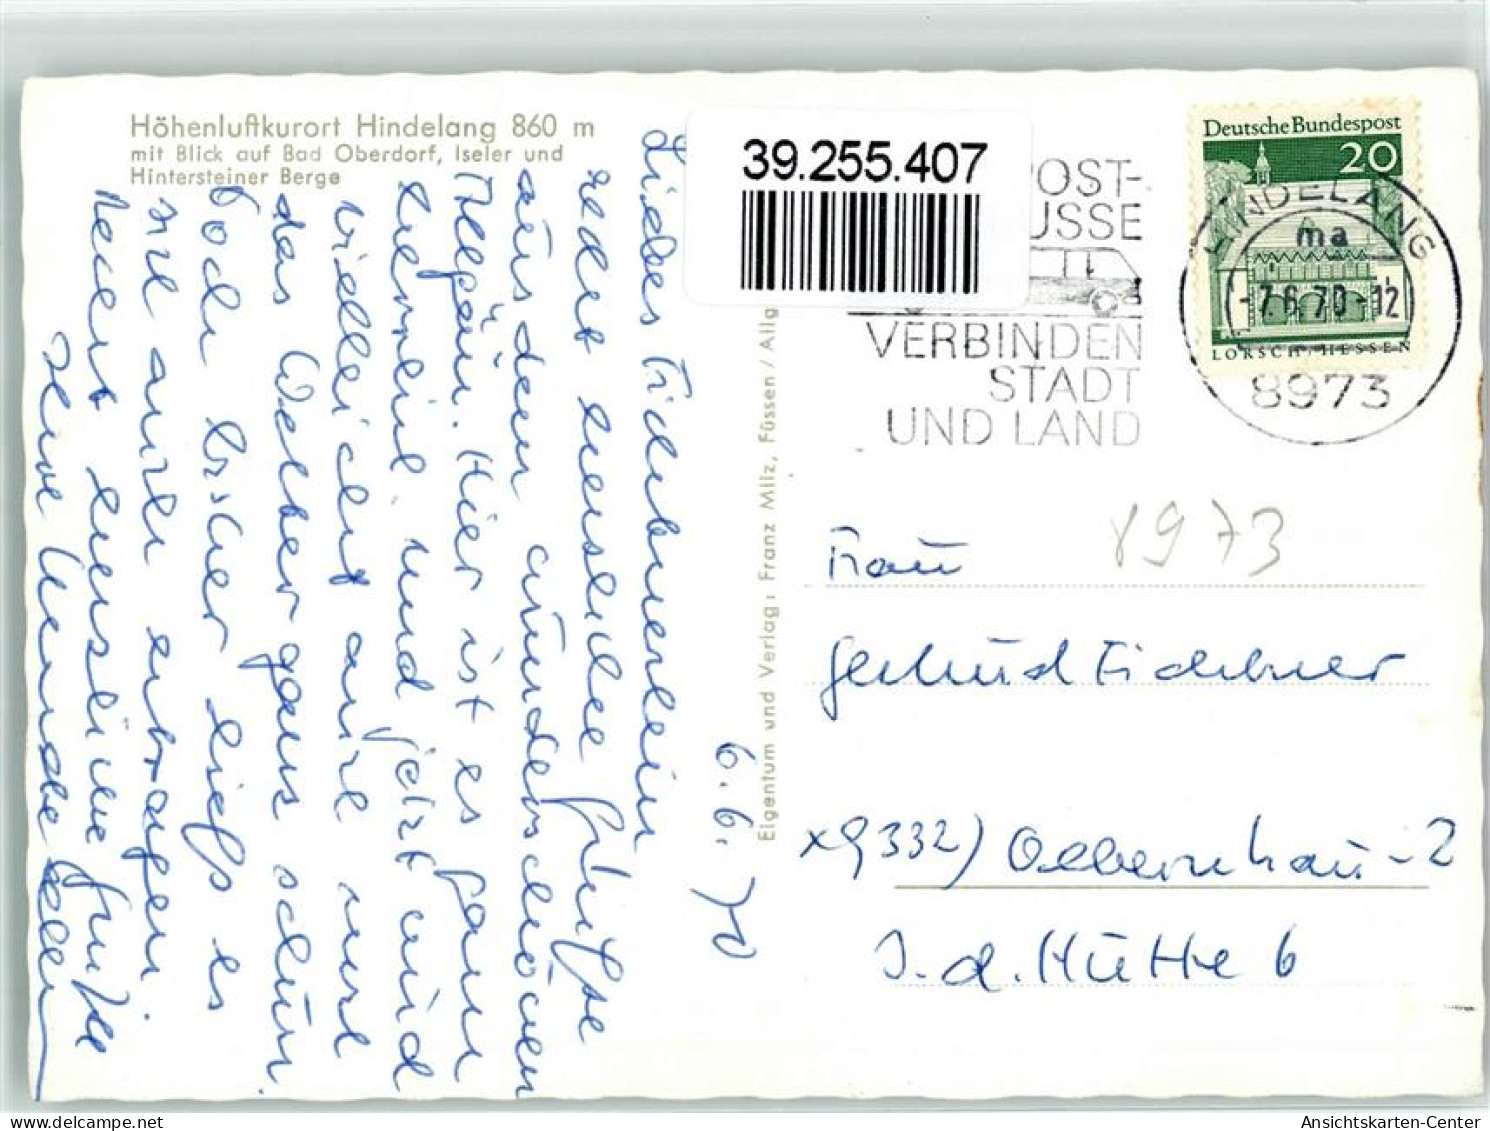 Höhenluftkurort Hindelang 860 m
mit Blick auf Bad Oberdorf, Iseler und
Hintersteiner Berge
39.255.407
POST-
USSE
VERBINDEN
STADT
UND LAND
Deutsche Bundespost
20
LORSCH/HESSEN
HINDELANG
ma
-7.6.70-12
8973
Eigentum und Verlag: Franz Milz, Füssen/Allg
6.6.70
Liebes
recht herzliche Grüße
aus dem wunderschönen
Allgäu. Hier ist es ganz
herrlich und jetzt wird
vielleicht auch mal
das Wetter ganz schön.
Doch bisher ließ es
sich auch ertragen.
herzliche Grüße
8973
Frau
Gertrud
x9332) Olbernhau-2
I.d. Hütte 6
Ansichtskarten-Center